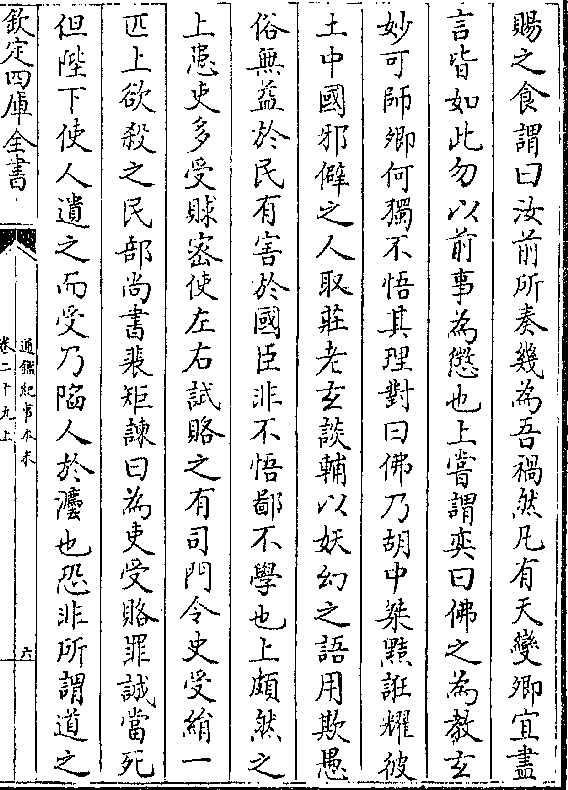 賜之食謂曰汝前所奏幾為吾禍然凡有天變卿宜盡
言皆如此勿以前事為懲也上嘗謂奕曰佛之為教玄
妙可師卿何獨不悟其理對曰佛乃胡中桀黠誑耀彼
土中國邪僻之人取莊老玄談輔以妖幻之語用欺愚
俗無益於民有害於國臣非不悟鄙不學也上頗然之
上患吏多受賕密使左右試賂之有司門令史受絹一
匹上欲殺之民部尚書裴矩諫曰為吏受賂罪誠當死
但陛下使人遺之而受乃陷人於灋也恐非所謂道之
欽定四庫全書
通鑑紀事本末
卷二十九上
六